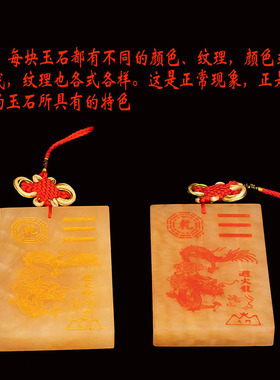 每块玉石都有不同的颜色、纹理，颜色
纹理也各式各样。这是正常现象，正是
玉石所具有的特色
龍
龍
避火龍